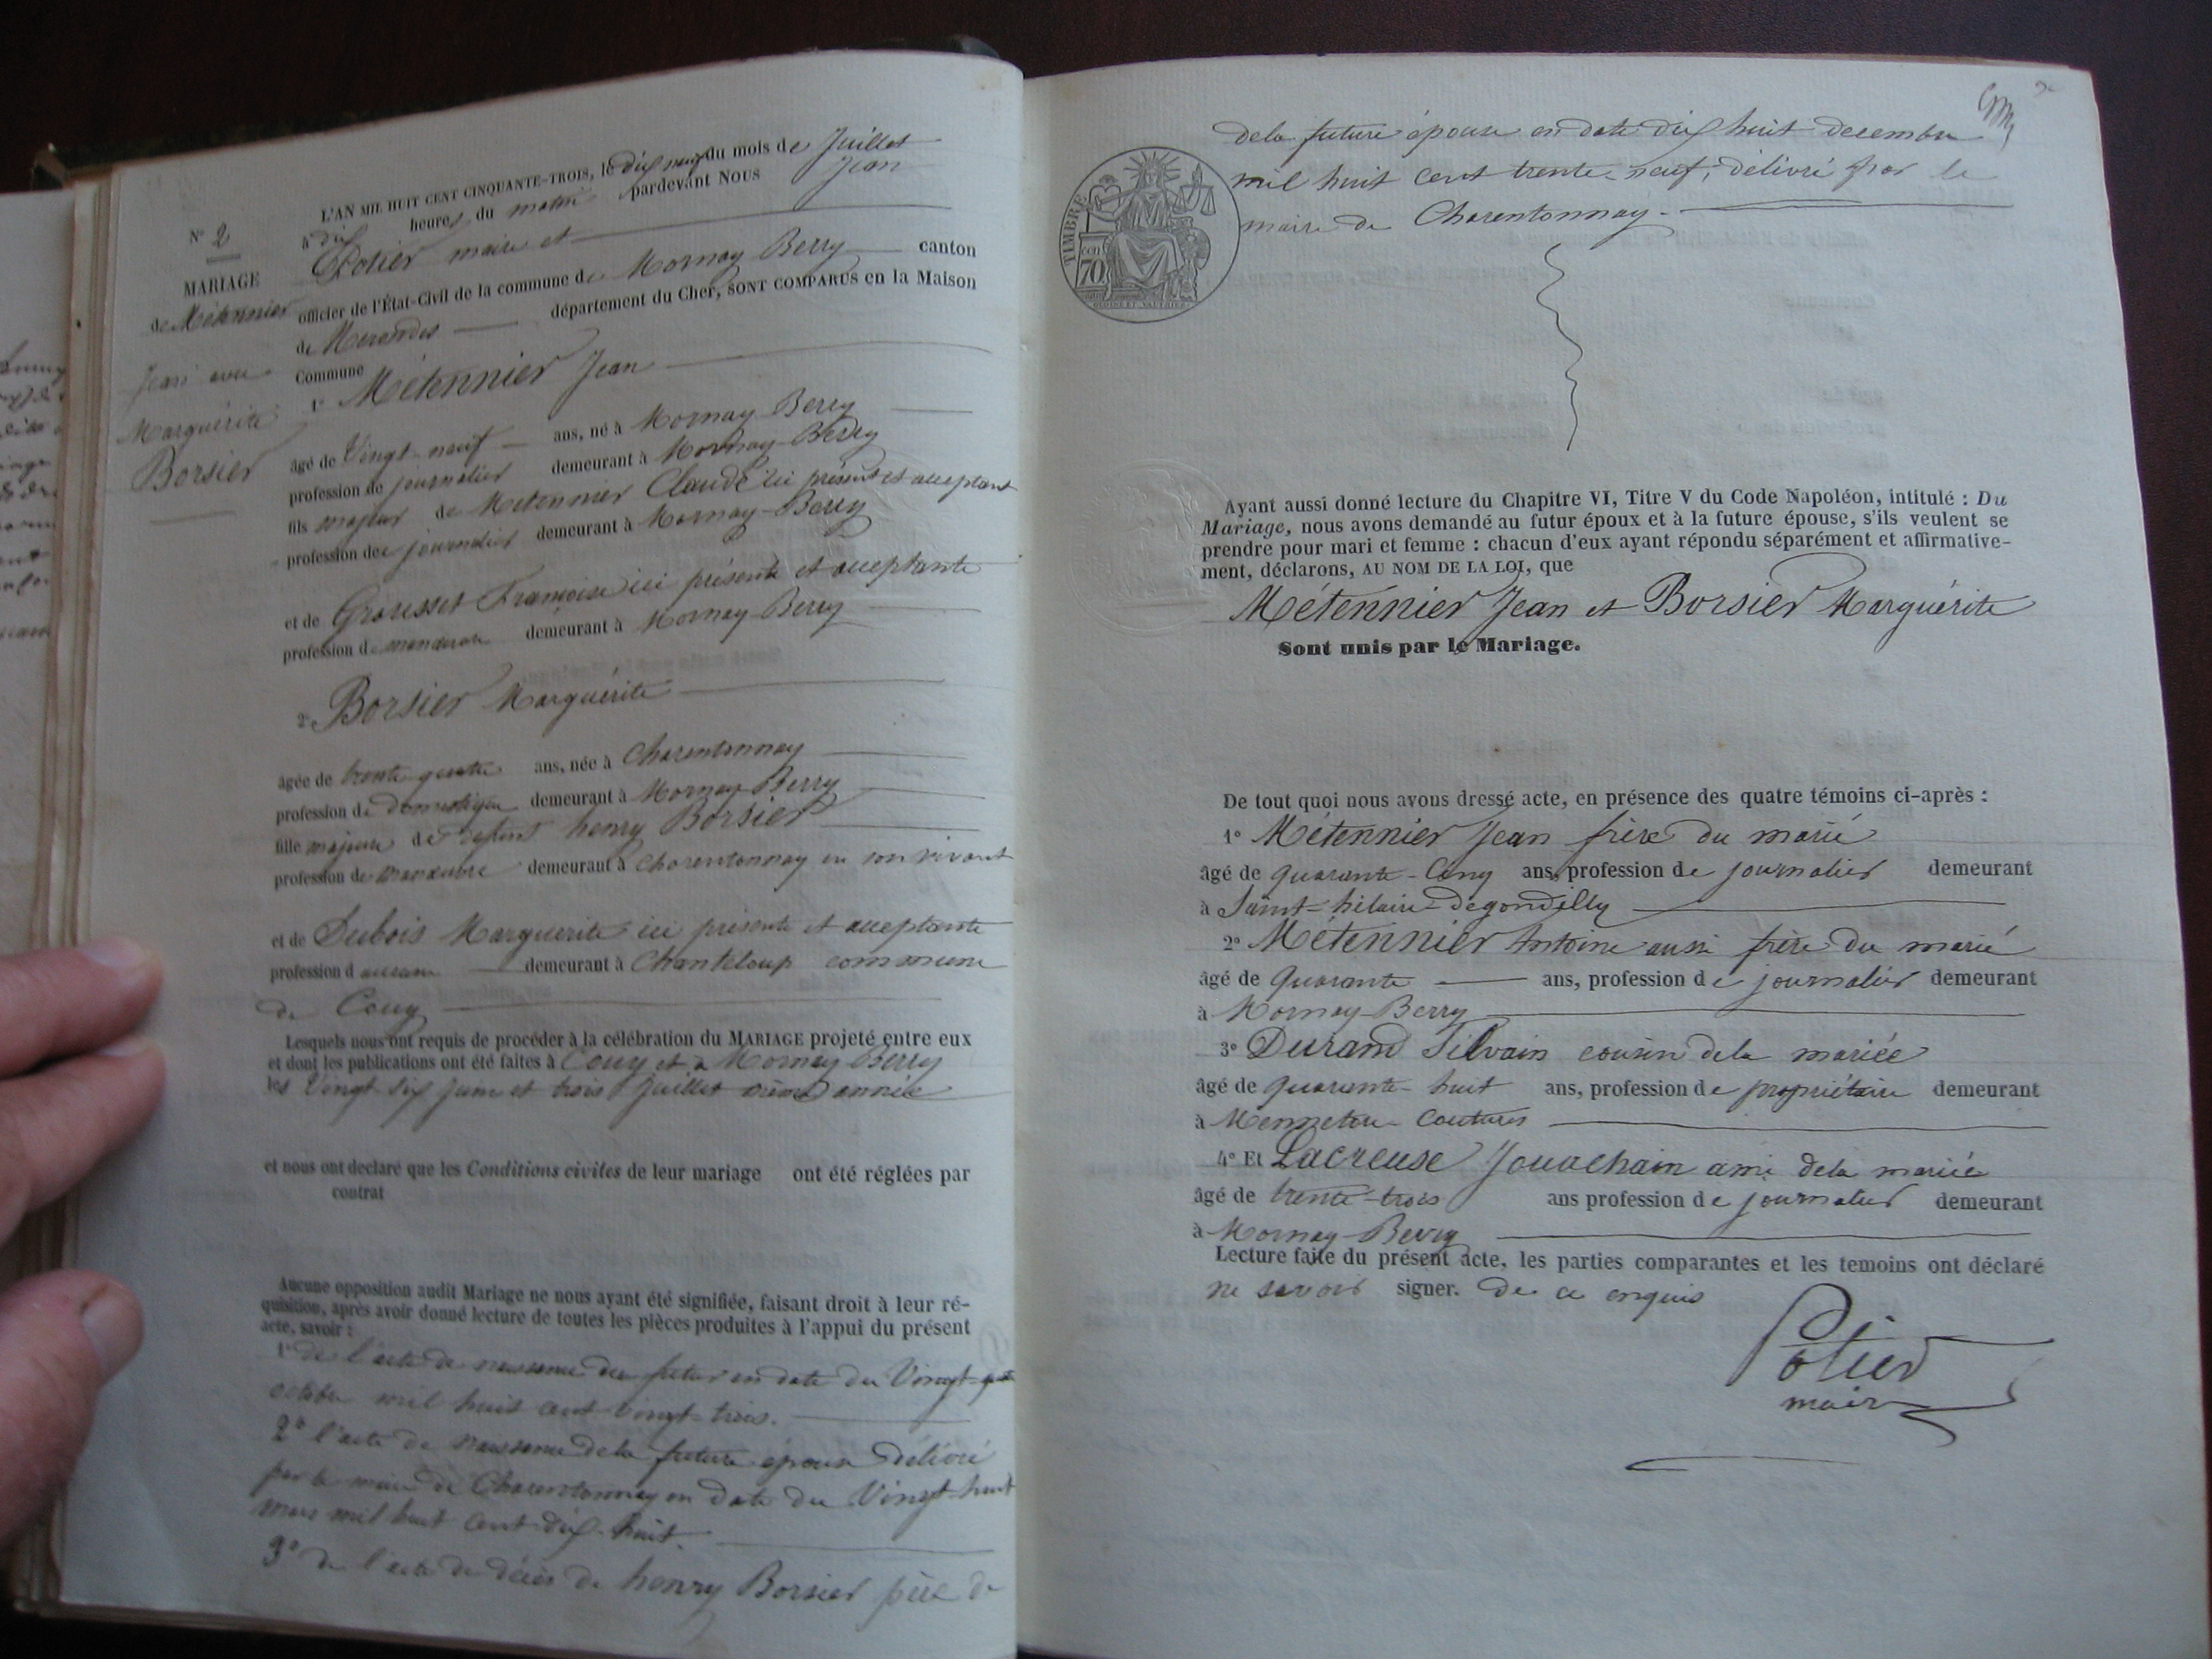 N° 2
MARIAGE
de Métennier
Jean avec
Marguérite
Borsier
L'AN MIL HUIT CENT CINQUANTE-TROIS, le dix neuf du mois de Juillet
à dix heures du matin pardevant NOUS Jean
Potier maire et
officier de l'État-Civil de la commune de Mornay Berry canton
de Nerondes département du Cher, SONT COMPARUS en la Maison
Commune
1° Métennier Jean
âgé de Vingt-neuf ans, né à Mornay Berry
profession de journalier demeurant à Mornay-Berry
fils majeur de Métennier Claude ici présent et acceptant
profession de journalier demeurant à Mornay-Berry
et de Grousset Francoise ici présente et acceptante
profession de demeurant à Mornay-Berry
2° Borsier Marguérite
âgée de trente quatre ans, née à Charentonnay
profession de domestique demeurant à Mornay-Berry
fille majeure de défunt henry Borsier
profession de manœuvre demeurant à Charentonnay en son vivant
et de Dubois Marguerite ici présente et acceptante
profession d aucune demeurant à Chanteloup commune
de Couy
Lesquels nous ont requis de procéder à la célébration du MARIAGE projeté entre eux
et dont les publications ont été faites à Couy et à Mornay Berry
les Vingt six juin et trois juillet même année
et nous ont declaré que les Conditions civiles de leur mariage ont été réglées par
contrat
Aucune opposition audit Mariage ne nous ayant été signifiée, faisant droit à leur ré-
quisition, après avoir donné lecture de toutes les pièces produites à l'appui du présent
acte, savoir :
1° de l'acte de naissance du futur en date du Vingt-quatre
octobre mil huit cent vingt-trois.
2° l'acte de naissance dela future épouse délivré
par le maire de Charentonnay en date du Vingt-huit
mars mil huit cent dix-huit.
3° de l'acte de décès de henry Borsier père de
dela future épouse en date dix huit decembre
mil huit cent trente-neuf, délivré par le
maire de Charentonnay.
TIMBRE
70 cent
Ayant aussi donné lecture du Chapitre VI, Titre V du Code Napoléon, intitulé : Du
Mariage, nous avons demandé au futur époux et à la future épouse, s'ils veulent se
prendre pour mari et femme : chacun d'eux ayant répondu séparément et affirmative-
ment, déclarons, AU NOM DE LA LOI, que
Métennier Jean et Borsier Marguérite
Sont unis par le Mariage.
De tout quoi nous avons dressé acte, en présence des quatre témoins ci-après :
1° Métennier Jean frère du marié
âgé de quarante-Cinq ans, profession de journalier demeurant
à Saint-hilaire-degondilly
2° Métennier Antoine aussi frère du marié
âgé de quarante ans, profession de journalier demeurant
à Mornay-Berry
3° Durand Silvain cousin dela mariée
âgé de quarante-huit ans, profession de propriétaire demeurant
à Mennetou-Coutures
4° Et Lacreuse Jouachain ami dela mariée
âgé de trente-trois ans profession de journalier demeurant
à Mornay-Berry
Lecture faite du présent acte, les parties comparantes et les temoins ont déclaré
ne savoir signer. de ce enquis
Potier
maire